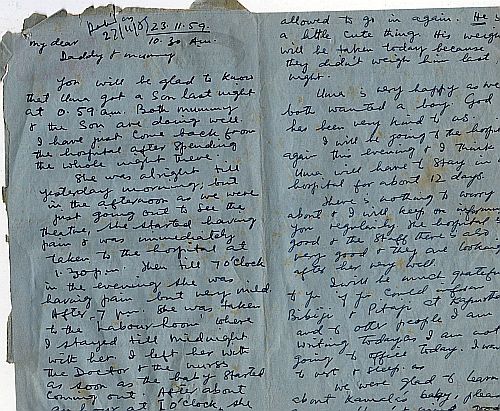 27/11/59
23.11.59
10.30 Am.
My dear
Daddy & mummy
You will be glad to know
that Uma got a son last night
at 0.59 am. Both mummy
& the son are doing well.
I have just come back from
the hospital after spending
the whole night there.
She was alright till
yesterday morning, but
in the afternoon as we were
just going out to see the
theatre, she started having
pain & was immediately
taken to the hospital at
1.30 pm. Then till 7 O'Clock
in the evening she was
having pain but very mild
After 7 pm. She was taken
to the labour room where
I stayed till midnight
with her. I left her with
the Doctor & the nurse
as soon as the baby started
coming out. After about
at 1 O'clock, she
allowed to go in again. He
a little cute thing. His weight
will be taken today because
they didn't weigh him last
night.
Uma is very happy as we
both wanted a boy. God
has been very kind to us.
I will be going to the
again this evening & I think
Uma will have to stay in
hospital for about 12 days.
There's nothing to worry
about & I will keep on informing
you regularly. The hospital is
good & the staff there is also
very good & they are looking
after her very well
I will be much grateful
to you if you could inform
Bibiji & Pitaji at Kapurthala
and to other people I am
writing today as I am not
going to office today. I want
to rest & sleep. as
we were glad to learn
about Kamala's baby, please